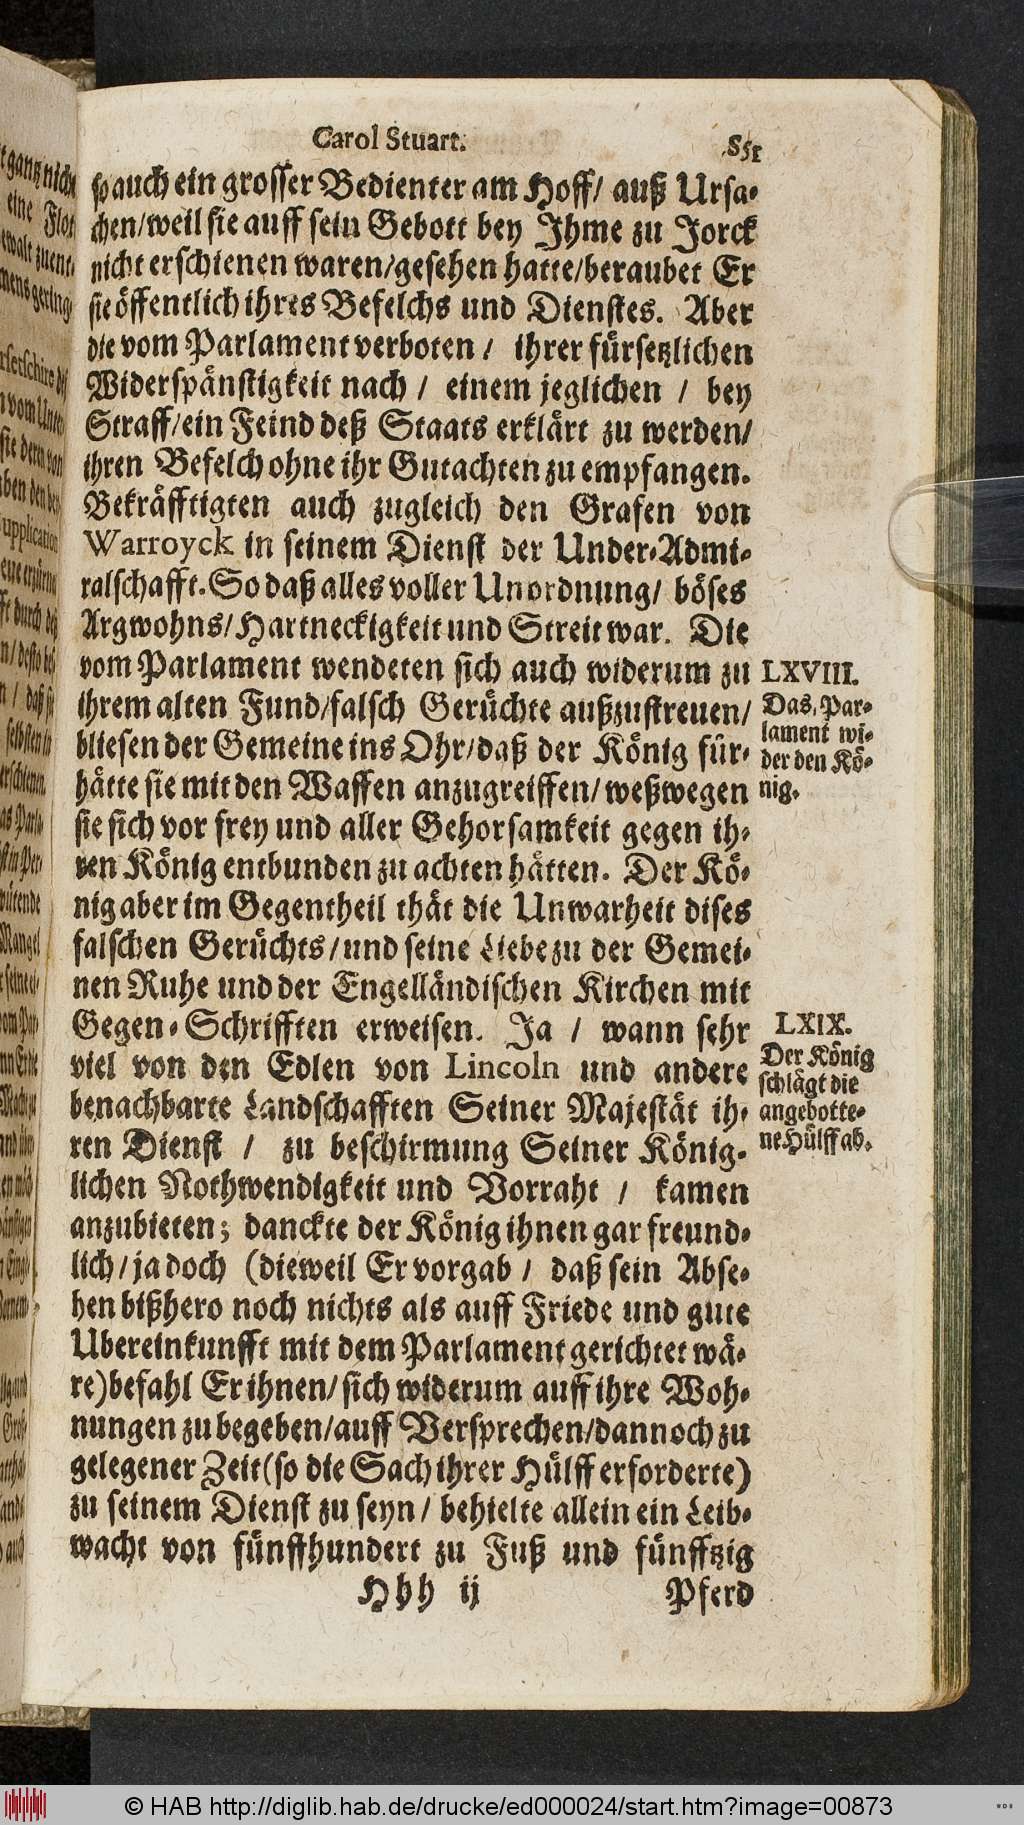 Carol Stuart. 851
so auch ein grosser Bedienter am Hoff/ auß Ursa-
chen/weil sie auff sein Gebott bey Ihme zu Jorck
nicht erschienen waren/gesehen hatte/beraubet Er
sie öffentlich ihres Befelchs und Dienstes. Aber
die vom Parlament verboten / ihrer fürsetzlichen
Widerspänstigkeit nach / einem jeglichen / bey
Straff/ein Feind deß Staats erklärt zu werden/
ihren Befelch ohne ihr Gutachten zu empfangen.
Bekräfftigten auch zugleich den Grafen von
Warroyck in seinem Dienst der Under-Admi-
ralschafft. So daß alles voller Unordnung/ böses
Argwohns/Hartneckigkeit und Streit war. Die
vom Parlament wendeten sich auch widerum zu
ihrem alten Fund/falsch Gerüchte außzustreuen/
bliesen der Gemeine ins Ohr/daß der König für-
hätte sie mit den Waffen anzugreiffen/weßwegen
sie sich vor frey und aller Gehorsamkeit gegen ih-
ren König entbunden zu achten hätten. Der Kö-
nig aber im Gegentheil thät die Unwarheit dises
falschen Gerüchts/und seine Liebe zu der Gemei-
nen Ruhe und der Engelländischen Kirchen mit
Gegen-Schrifften erweisen. Ja / wann sehr
viel von den Edlen von Lincoln und andere
benachbarte Landschafften Seiner Majestät ih-
ren Dienst / zu beschirmung Seiner König-
lichen Nothwendigkeit und Vorraht / kamen
anzubieten; danckte der König ihnen gar freund-
lich/ja doch (dieweil Er vorgab / daß sein Abse-
hen bißhero noch nichts als auff Friede und gute
Ubereinkunfft mit dem Parlament gerichtet wä-
re)befahl Er ihnen/sich widerum auff ihre Woh-
nungen zu begeben/auff Versprechen/dannoch zu
gelegener Zeit(so die Sach ihrer Hülff erforderte)
zu seinem Dienst zu seyn/ behielte allein ein Leib-
wacht von fünffhundert zu Fuß und fünfftzig
Hhh ij Pferd
LXVIII.
Das Par-
lament wi-
der den Kö-
nig.
LXIX.
Der König
schlägt die
angebotte-
ne Hülff ab.
© HAB http://diglib.hab.de/drucke/ed000024/start.htm?image=00873